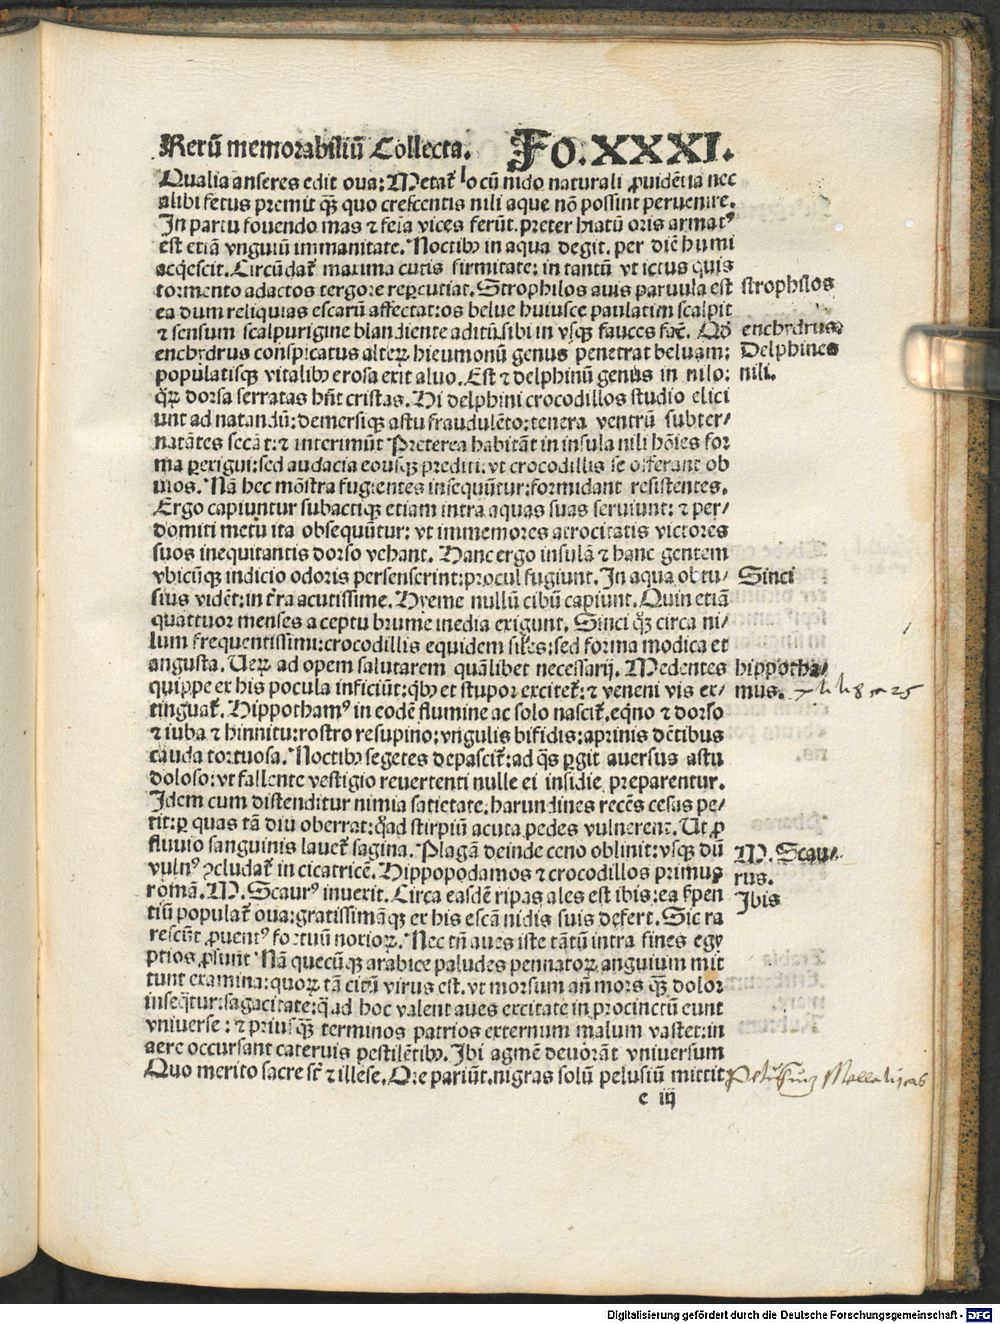 Rerū memorabiliū Collecta. Fo.XXXI.
Qualia anseres edit oua: Metat᷑ locū nido naturali ꝓuidētia nec
alibi fetus premit qᷓꝫ quo crescentis nili aque nō possint peruenire.
In partu fouendo mas ⁊ fēia vices ferūt. preter hiatū oris armatꝰ
est etiā vnguiū immanitate. Noctibꝫ in aqua degit. per diē humi
acq̇escit. Circūdat᷑ maxima cutis firmitate: in tantū vt ictus quis
tormento adactos tergore reꝑcutiat. Strophilos auis paruula est
ea dum reliquias escarū affectat: os belue huiusce paulatim scalpit
⁊ sensum scalpurigine blandiente aditū sibi in vsqꝫ fauces fac̄. Qd̄
enchydrus conspicatus alteꝝ hieumonū genus penetrat beluam:
populatisqꝫ vitalibꝫ erosa exit aluo. Est ⁊ delphinū genus in nilo:
q̄ꝝ dorsa serratas hn̄t cristas. Hi delphini crocodillos studio elici
unt ad natandū: demersiqꝫ astu fraudulēto: tenera ventrū subter/
natātes secāt: ⁊ interimūt Preterea habitāt in insula nili hōies for
ma ꝑexigui: sed audacia eousqꝫ prediti. vt crocodillis se offerant ob
uios. Nā hec mōstra fugientes insequūtur: formidant resistentes.
Ergo capiuntur subactiqꝫ etiam intra aquas suas seruiunt: ⁊ per/
domiti metu ita obsequūtur: vt immemores atrocitatis victores
suos inequitantis dorso vehant. Hanc ergo insulā ⁊ hanc gentem
vbicūqꝫ indicio odoris persenserint: procul fugiunt. In aqua obtu/
sius vidēt: in t̄ra acutissime. Hyeme nullū cibū capiunt. Quin etiā
quattuor menses a ceptu brume inedia exigunt. Sinci qͦꝫ circa ni/
lum frequentissimi: crocodillis equidem sil̄es: sed forma modica et
angusta. Ueꝝ ad opem salutarem quālibet necessarij. Medentes
quippe ex his pocula inficiūt: qͥbꝫ et stupor excitet᷑: ⁊ veneni vis ex/
tinguat᷑. Hippothamꝰ in eodē flumine ac solo nascit᷑. eq̇no ⁊ dorso
⁊ iuba ⁊ hinnitu: rostro resupino: vngulis bifidis: aprinis dētibus
cauda tortuosa. Noctibꝫ segetes depascit᷑: ad q̄s ꝑgit auersus astu
doloso: vt fallente vestigio reuertenti nulle ei insidie preparentur.
Idem cum distenditur nimia satietate. harundines recēs cesas pe/
tit: ꝑ quas tā diū oberrat: qͦad stirpiū acuta pedes vulnerent. Ut ꝓ
fluuio sanguinis lauet᷑ sagina. Plagā deinde ceno oblinit: vsqꝫ dū
vulnꝰ ꝯcludat᷑ in cicatricē. Hippopodamos ⁊ crocodillos primus
romā. M. Scaurꝰ inuexit. Circa easdē ripas ales est ibis: ea s̓pen
tiū populat᷑ oua: gratissimāqꝫ ex his escā nidis suis defert. Sic ra
rescūt ꝓuentꝰ fortuū noxioꝝ. Nec tn̄ aues iste tātū intra fines egy
ptios ꝓsunt Nā quecūqꝫ arabice paludes pennatoꝝ anguium mit
tunt examina: quoꝝ tā citū virus est. vt morsum an̄ mors qᷓꝫ dolor
inseq̄tur: sagacitate: q̄ ad hoc valent aues excitate in procinctū eunt
vniuerse: ⁊ priusqᷓꝫ terminos patrios externum malum vastet: in
aere occursant cateruis pestilētibꝫ. Ibi agmē deuorāt vniuersum
Quo merito sacre sūt ⁊ illese. Ore pariūt. nigras solū pelusiū mittit
e iij
strophilos
enchydrus.
Delphines
nili.
Sinci
hippotha/
mus.
li 8 25
M. Scau/
rus.
Ibis